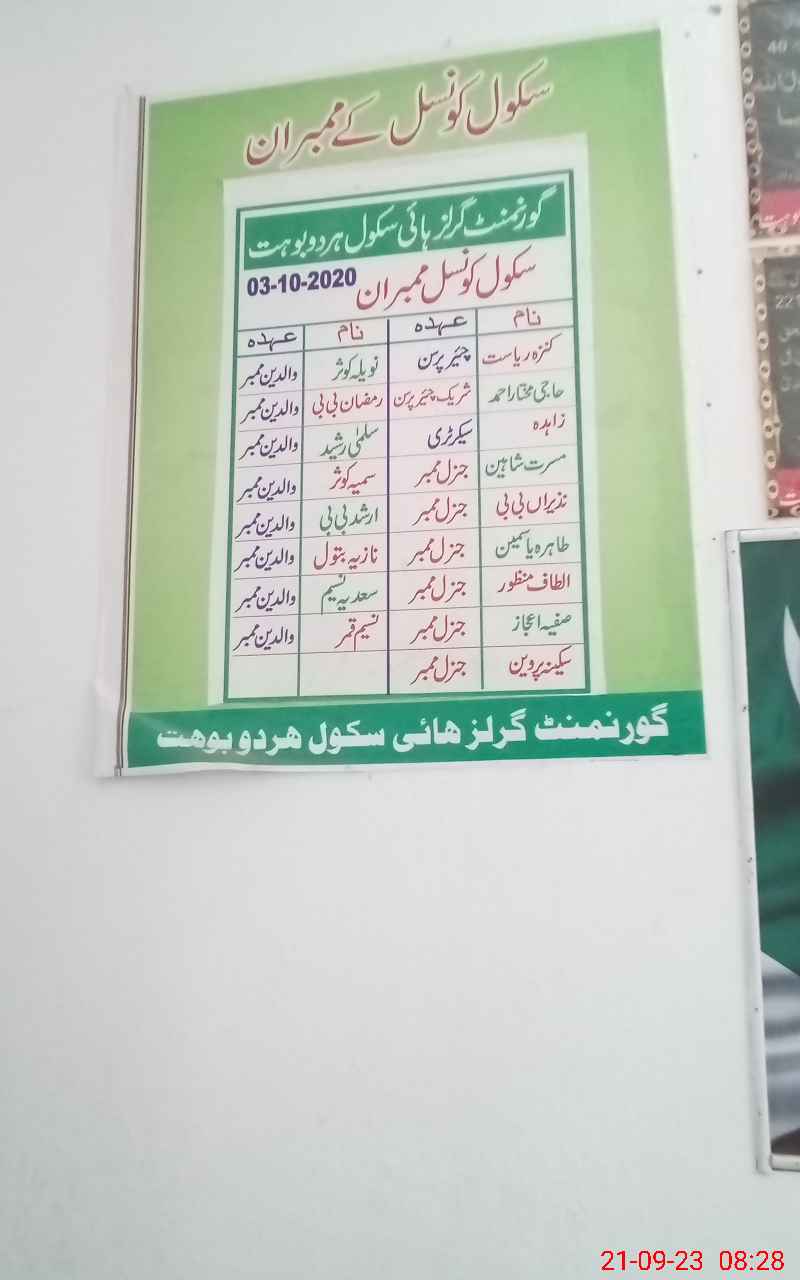 سکول کونسل کے ممبران
گورنمنٹ گرلز ہائی سکول ہردوبوہت
سکول کونسل ممبران 03-10-2020
نام عہدہ نام عہدہ
کنزہ ریاست چیئر پرسن نویلہ کوثر والدین ممبر
حاجی مختار احمد شریک چیئر پرسن رمضان بی بی والدین ممبر
زاہدہ سیکرٹری سلمیٰ رشید والدین ممبر
مسرت شاہین جنرل ممبر سمیہ کوثر والدین ممبر
نذیراں بی بی جنرل ممبر ارشد بی بی والدین ممبر
طاہرہ یاسمین جنرل ممبر نازیہ بتول والدین ممبر
الطاف منظور جنرل ممبر سعدیہ نسیم والدین ممبر
صفیہ اعجاز جنرل ممبر نسیم قمر والدین ممبر
سکینہ پروین جنرل ممبر
گورنمنٹ گرلز ھائی سکول ھردوبوھت
40
221
21-09-23 08:28